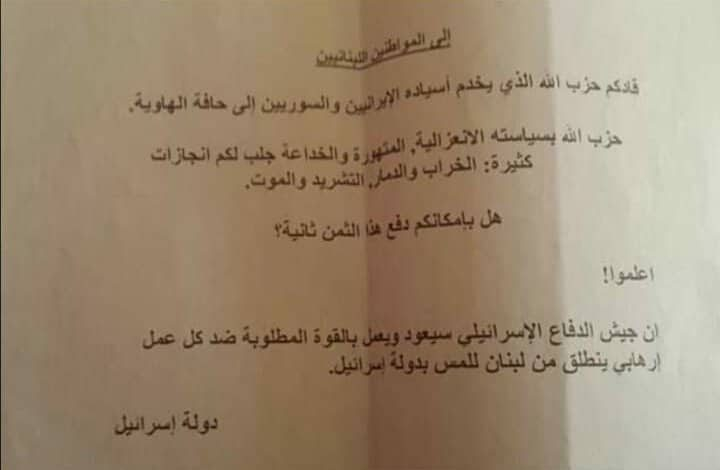 إلى المواطنين اللبنانيين
قادكم حزب الله الذي يخدم أسياده الإيرانيين والسوريين إلى حافة الهاوية.
حزب الله بسياسته الانعزالية, المتهورة والخداعة جلب لكم انجازات
كثيرة: الخراب والدمار, التشريد والموت.
هل بإمكانكم دفع هذا الثمن ثانية؟
اعلموا!
ان جيش الدفاع الإسرائيلي سيعود ويعمل بالقوة المطلوبة ضد كل عمل
إرهابي ينطلق من لبنان للمس بدولة إسرائيل.
دولة إسرائيل